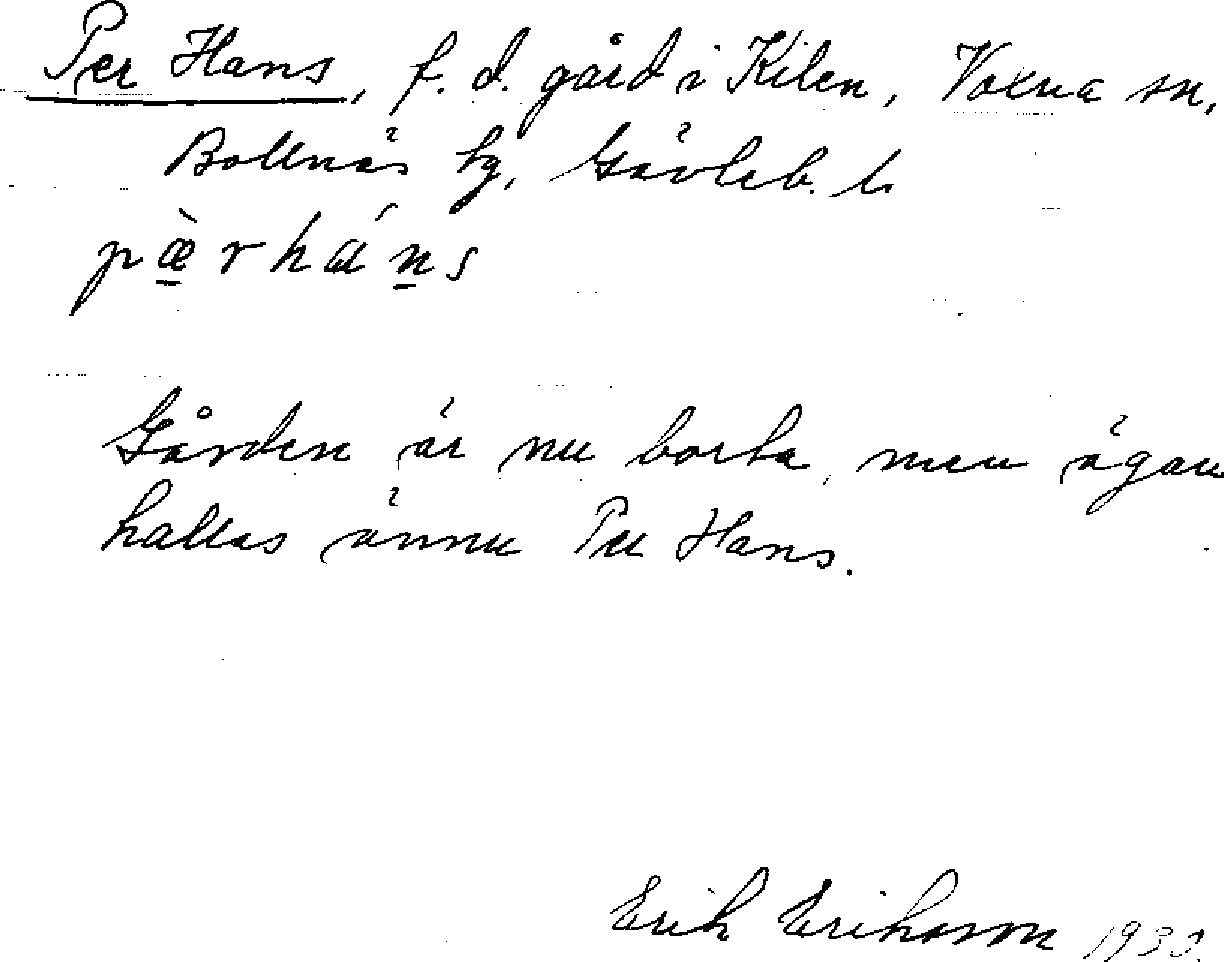 Per Hans, f. d. gård i Kilen, Voxna sn,
Bollnäs tg, Gävleb. l.
pæ̀rháns
Gården är nu borta, men ägan
kallas ännu Per Hans.
Erik Eriksson 1930.